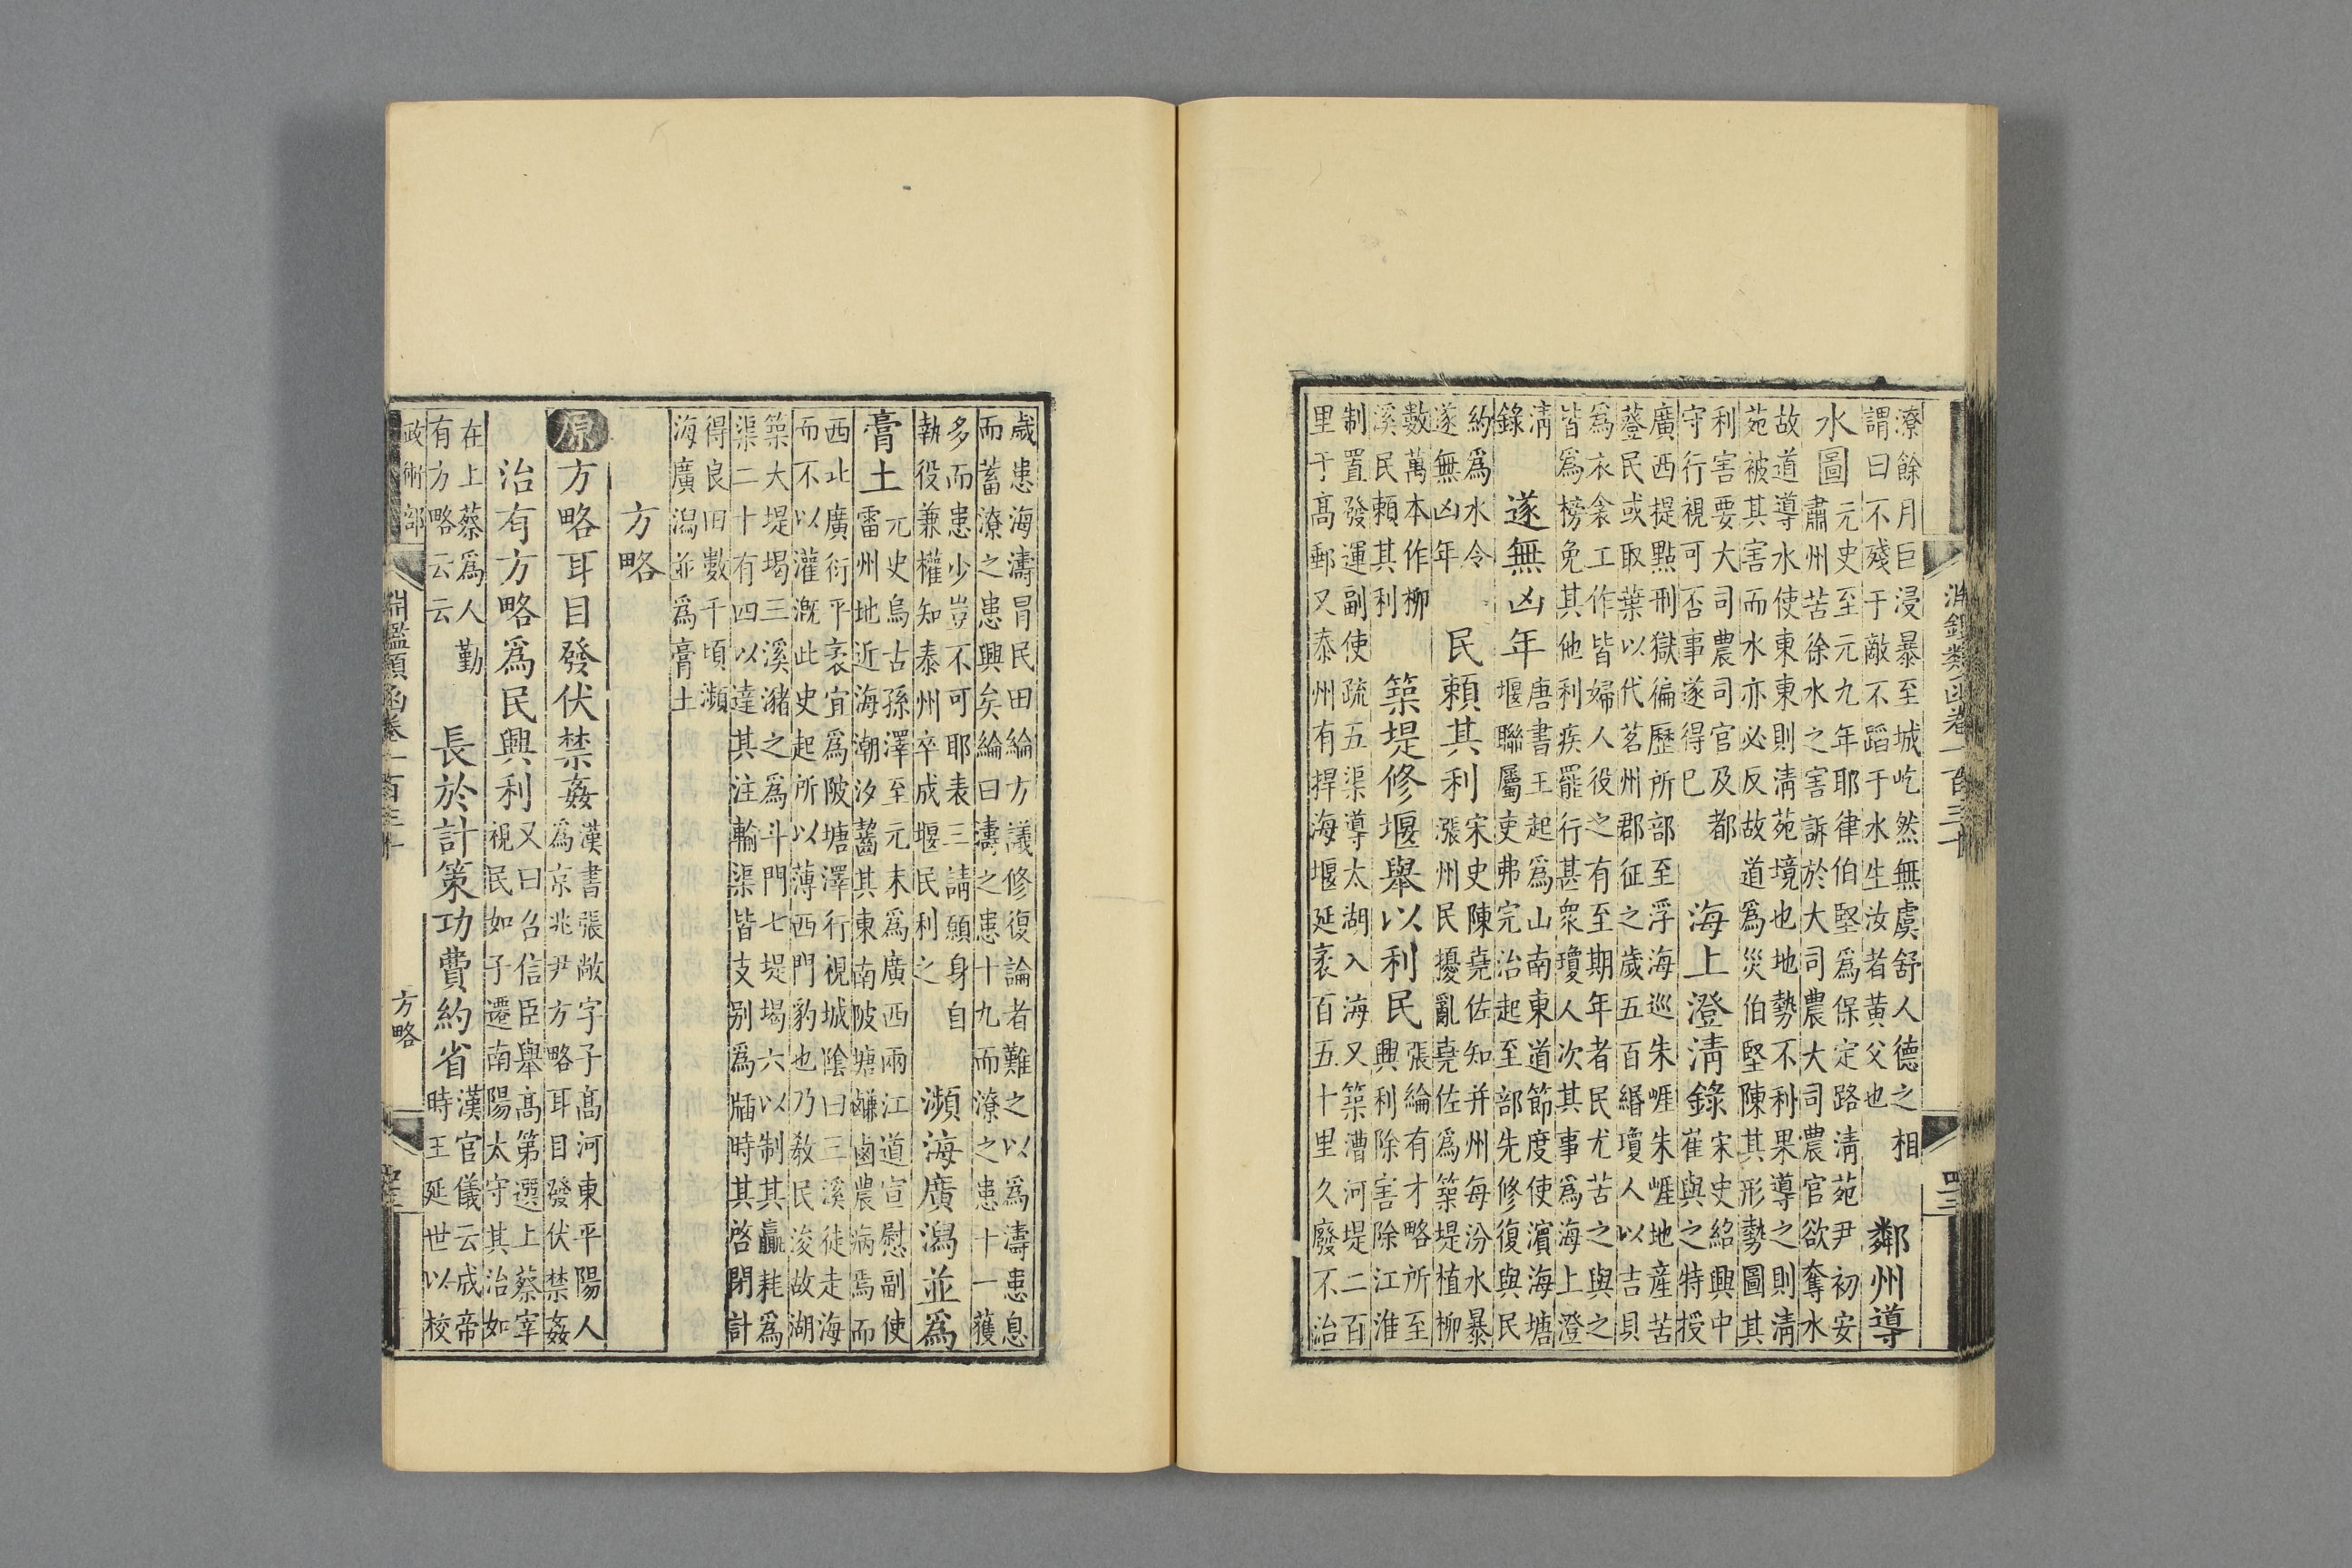 淵鑑類函卷一百三十
四三
潦餘月巨浸暴至城屹然無虞舒人德之相
謂曰不殘于敵不蹈于水生汝者黃父也
鄰州導
水圖
元史至元九年耶律伯堅爲保定路淸苑尹初安
肅州苦徐水之害訴於大司農大司農官欲奪水
故道導水使東東則淸苑境也地勢不利果導之則淸
苑被其害而水亦必反故道爲災伯堅陳其形勢圖其
利害要大司農司官及都
守行視可否事遂得已
海上澄淸錄
宋史紹興中
崔與之特授
廣西提點刑獄徧歷所部至浮海巡朱崕朱崕地產苦
䔲民或取葉以代茗州郡征之歲五百緡瓊人以吉貝
爲衣衾工作皆婦人役之有至期年者民尤苦之與之
皆爲榜免其他利疾罷行甚衆瓊人次其事爲海上澄
淸
錄
遂無凶年
唐書王起爲山南東道節度使濱海塘
堰聯屬吏弗完治起至部先修復與民
約爲水令
遂無凶年
民賴其利
宋史陳堯佐知并州每汾水暴
漲州民擾亂堯佐爲築堤植柳
數萬本作柳
溪民賴其利
築堤修堰舉以利民
張綸有才略所至
興利除害除江淮
制置發運副使疏五渠導太湖入海又築漕河堤二百
里于高郵又泰州有捍海堰延袤百五十里久廢不治
歲患海濤冒民田綸方議修復論者難之以爲濤患息
而蓄潦之患興矣綸曰濤之患十九而潦之患十一獲
多而患少豈不可耶表三請願身自
執役兼權知泰州卒成堰民利之
瀕海廣潟並爲
膏土
元史烏古孫澤至元末爲廣西兩江道宣慰副使
雷州地近海潮汐齧其東南陂塘鹻鹵農病焉而
西北廣衍平袤宜爲陂塘澤行視城陰曰三溪徒走海
而不以灌漑此史起所以薄西門豹也乃敎民浚故湖
築大堤堨三溪瀦之爲斗門七堤堨六以制其贏耗爲
渠二十有四以達其注輸渠皆支别爲牐時其啓閉計
得良田數千頃瀕
海廣潟並爲膏土
方略
原
方略耳目發伏禁姦
漢書張敞字子高河東平陽人
爲京兆尹方略耳目發伏禁姦
治有方略爲民興利
又曰召信臣舉高第遷上蔡宰
視民如子遷南陽太守其治如
在上蔡爲人勤
有方略云云
長於計策功費約省
漢官儀云成帝
時王延世以校
政術部
淵鑑類函卷一百三十
方略